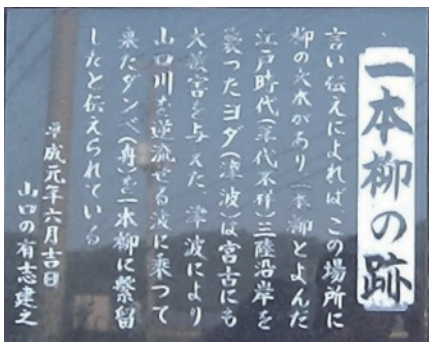 一本柳の跡
言い伝えによれば、この場所に
柳の大木があり一本柳とよんだ
江戸時代(年代不祥)三陸沿岸を
襲ったヨダ(津波)は宮古にも
大被害を与えた津波により
山口川を逆流せる波に乗って
来たダンベ(舟)を一本柳に繋留
したと伝えられている
平成元年六月吉日
山口の有志建之